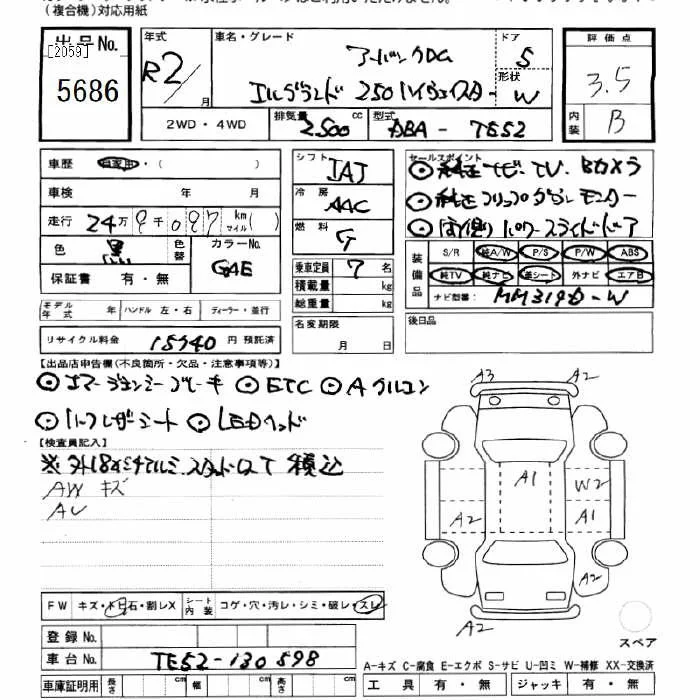 (複合機)対応用紙
出品No.
[2059]
5686
年式
R2/月
車名・グレード
アーバンクロム
エルグランド 250ハイウェイスター
ドア
5
形状
W
評価点
3.5
内装
B
2WD・4WD
排気量
2500 cc
型式
DBA- TE52
車歴 自家用・( )
車検 年 月
走行 24万 9千097 km マイル( )
色 黒
色替
カラーNo.
GAE
保証書 有・無
シフト
IAT
冷房
AAC
燃料
G
乗車定員 7 名
積載量 kg
総重量 kg
セールスポイント
◎純正ナビ、TV、Bカメラ
◎純正フリップダウンモニター
◎両側パワースライドドア
装備品
S/R 純A/W P/S P/W ABS
純TV 純ナビ 革シート 外ナビ エアB
ナビ型番: MM319D-W
モデル年式 年 ハンドル 左・右 ディーラー・並行
リサイクル料金 15940 円 預託済
名変期限
月 日
後日品
【出品店申告欄(不良箇所・欠品・注意事項等)】
◎エマージェンシーブレーキ ◎ETC ◎Aクルコン
◎ハーフレザーシート ◎LEDヘッド
【検査員記入】
※外18インチアルミ、スタッドレス 積込
AW キズ
AU
A3
A2
A1
W2
A2
A1
A2
A2
FW キズ・トビ石・割レX
シート内装 コゲ・穴・汚レ・シミ・破レ・スレ
スペア
登録No.
車台No. TE52-130598
A-キズ C-腐食 E-エクボ S-サビ U-凹ミ W-補修 XX-交換済
車庫証明用 長さ cm 幅 cm 高さ cm
工具 有・無 ジャッキ 有・無